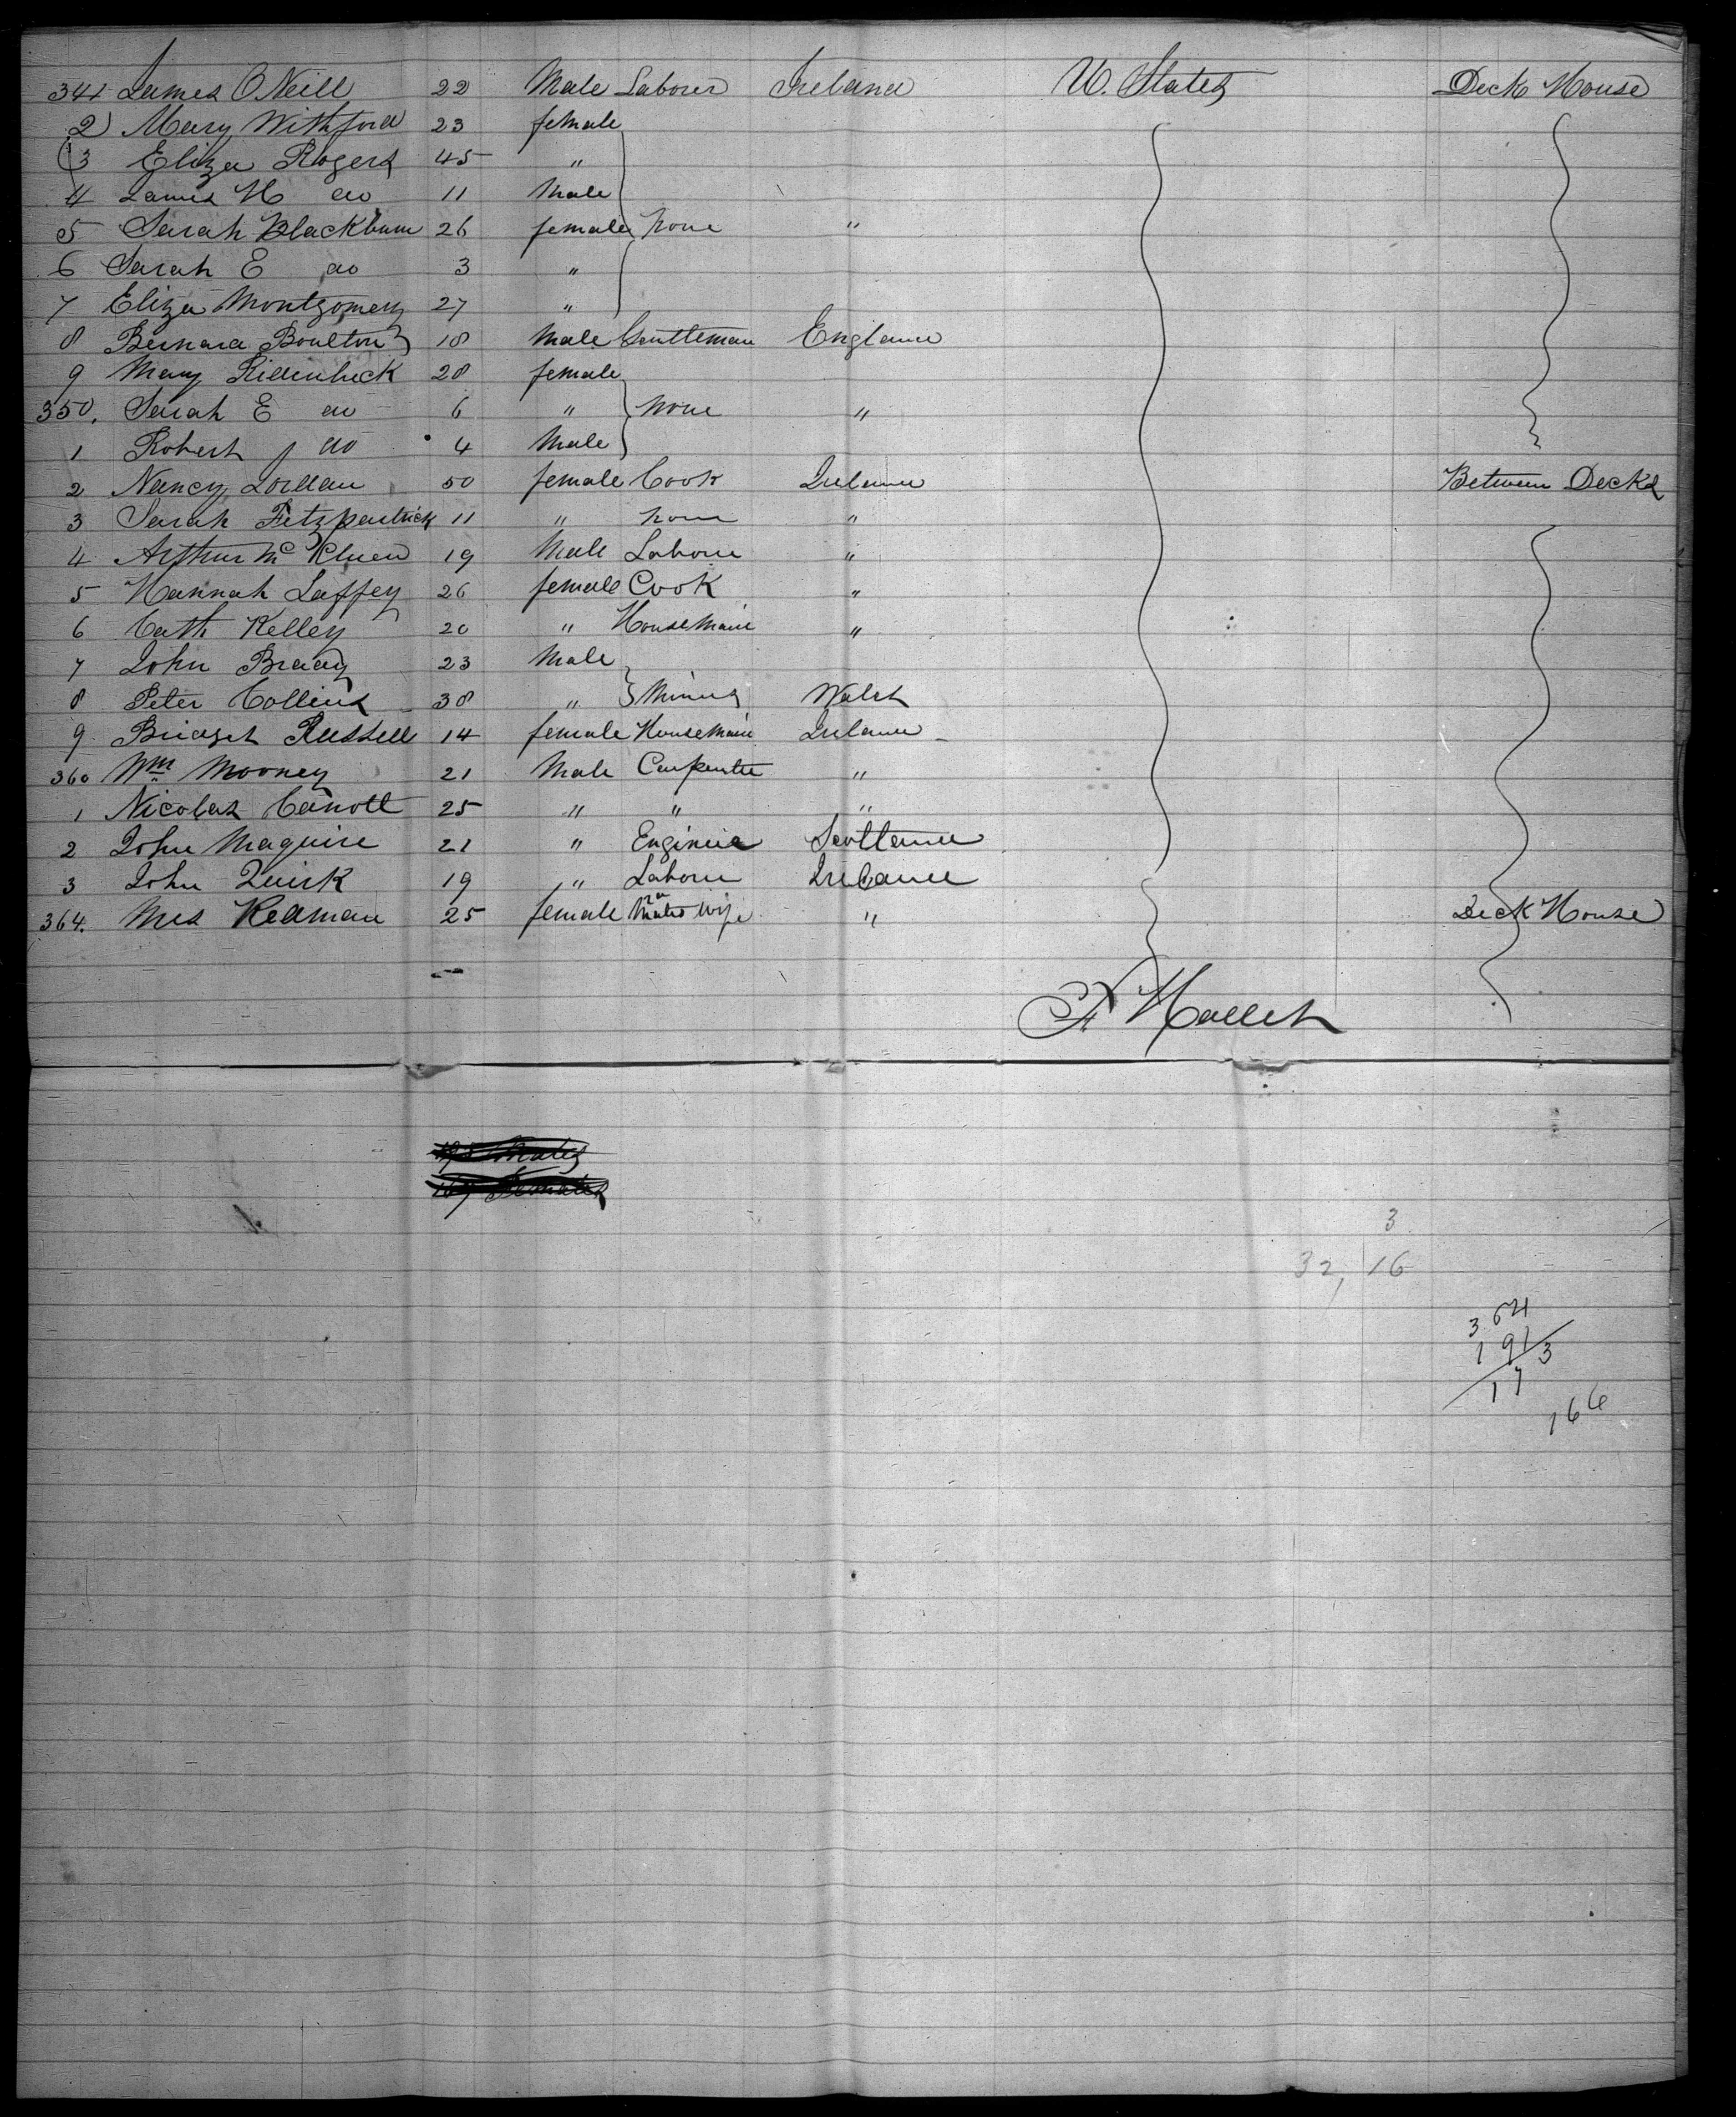 341 James O'Neill 22 Male Laborer Ireland U. States Deck House
2 Mary Withford 23 female
3 Eliza Rogers 45 "
4 James H do 11 Male
5 Sarah Blackburn 26 female none "
6 Sarah E do 3 "
7 Eliza Montgomery 27 "
8 Bernard Boulton 18 Male Gentleman England
9 Mary 28 female
350. Sarah E do 6 " none "
1 Robert J do 4 Male
2 Nancy 50 female Cook Ireland Between Decks
3 Sarah Fitzpartrick 11 " none "
4 Arthur Mc 19 Male Laborer "
5 Hannah Laffey 26 female Cook "
6 Cath Kelley 20 " Housemaid "
7 John Brady 23 Male
8 Peter Collins 38 " Miners Wales
9 Bridget Russell 14 female Housemaid Ireland
360 Wm Mooney 21 Male Carpenter "
1 Nicolas Carroll 25 " " "
2 John Maguire 21 " Engineer Scotland
3 John Quirk 19 " Laborer Ireland
364. Mrs Redman 25 female 2d Mates Wife " Deck House
Hallett
Males
Females
3
32, 16
364
191
173
166